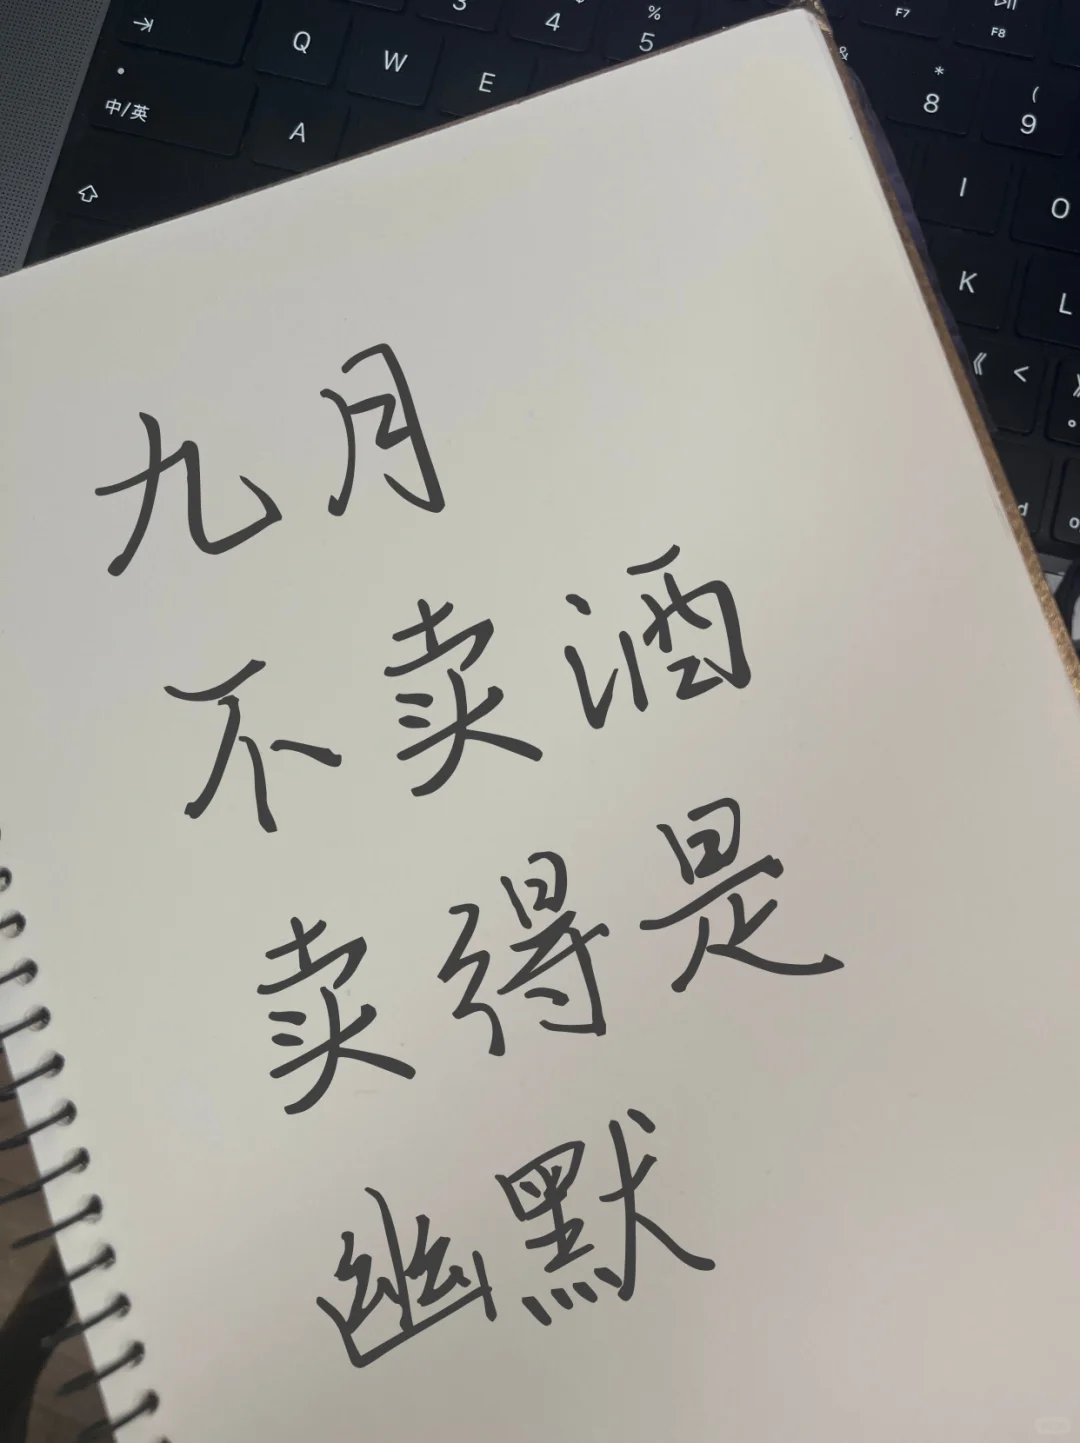 九月
不卖酒
卖得是
幽默
3
$ 4
% 5
F7
F8
Q W E
* 8
( 9
中/英
A
I O
K L
《 <